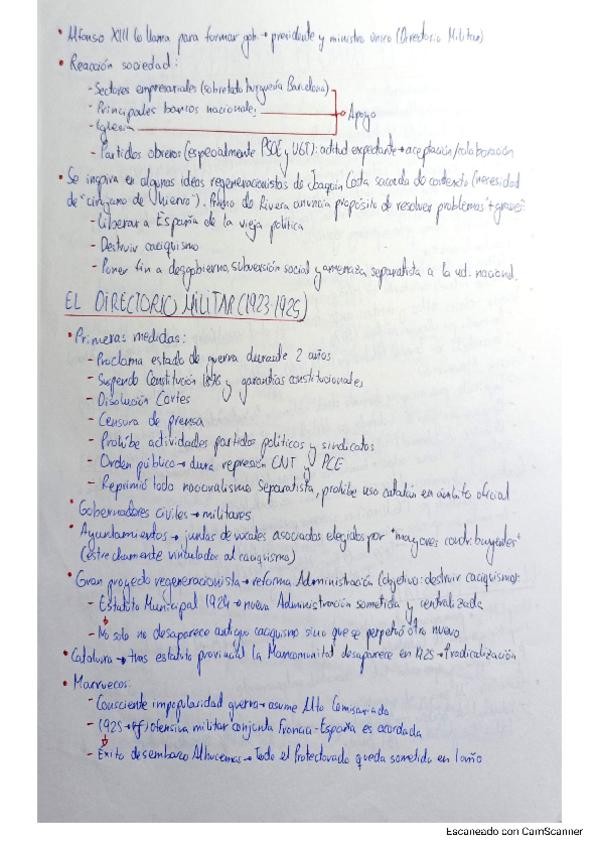 • Alfonso XIII lo llama para formar gob. → presidente y ministro único (Directorio Militar)
• Reacción sociedad:
- Sectores empresariales (sobretodo burguesía Barcelona)
- Principales bancos nacionales
→ Apoyo
- Iglesia
- Partidos obreros (especialmente PSOE y UGT): actitud expectante → aceptación/colaboración
• Se inspira en algunas ideas regeneracionistas de Joaquín Costa sacando de contexto (necesidad
de "cirujano de hierro"). Primo de Rivera anuncia propósito de resolver problemas + graves:
- Liberar a España de la vieja política
- Destruir caciquismo
- Poner fin a desgobierno, subversión social y amenaza separatista a la ud. nacional.
EL DIRECTORIO MILITAR (1923-1925)
• Primeras medidas:
- Proclama estado de guerra durante 2 años
- Suspende Constitución 1876 y garantías constitucionales
- Disolución Cortes
- Censura de prensa
- Prohíbe actividades partidos políticos y sindicatos
- Orden público → dura represión CNT y PCE
- Reprimió todo nacionalismo separatista, prohíbe uso catalán en ámbito oficial
• Gobernadores civiles → militares
• Ayuntamientos → juntas de vocales asociados elegidos por "mayores contribuyentes"
(estrechamente vinculados al caciquismo)
• Gran proyecto regeneracionista → reforma Administración (objetivo: destruir caciquismo):
- Estatuto Municipal 1924 → nueva Administración sometida y centralizada
- No solo no desaparece antiguo caciquismo sino que se perpetró otro nuevo
• Cataluña → tras estatuto provincial la Mancomunitat desaparece en 1925 → radicalización
• Marruecos:
- Consciente impopularidad guerra → asume Alto Comisariado
- 1925 → ofensiva militar conjunta Francia-España es acordada
- Éxito desembarco Alhucemas → Todo el Protectorado queda sometido en 1 año
Escaneado con CamScanner